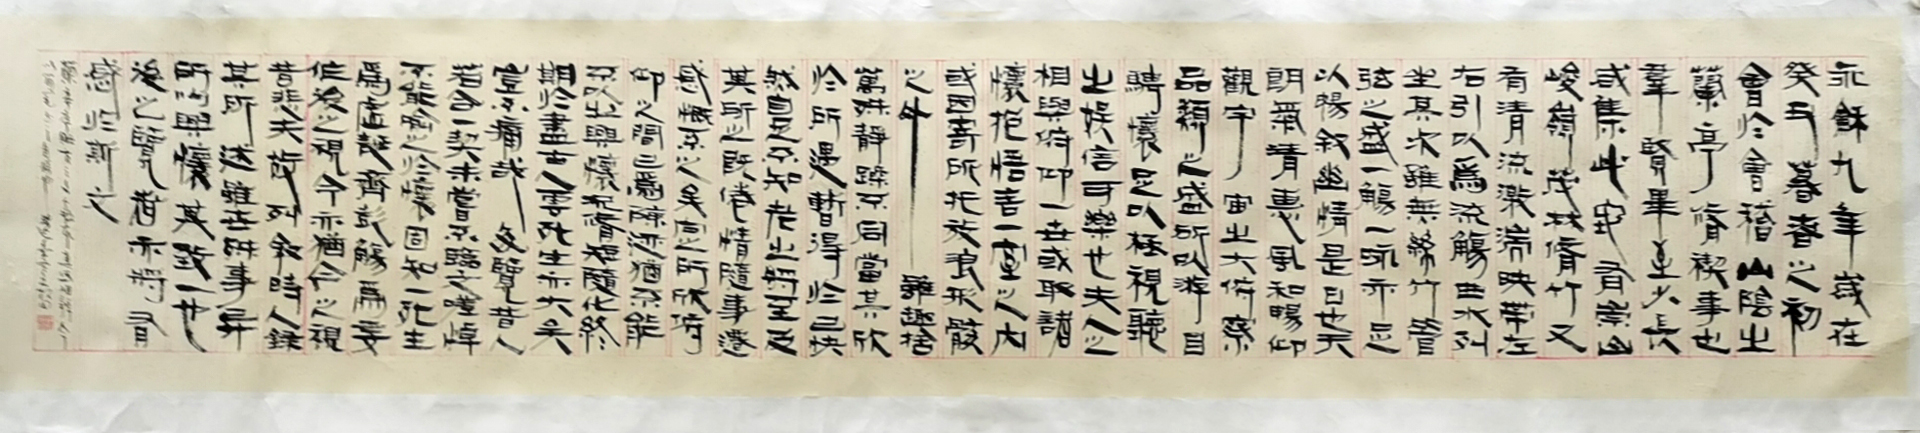 永龢九年歲在
癸丑暮春之初
會於會稽山陰之
蘭亭脩禊事也
羣賢畢至少長
咸集此地有崇山
峻嶺茂林脩竹又
有清流激湍映帶左
右引以為流觴曲水列
坐其次雖無絲竹管
弦之盛一觴一詠亦足
以暢敘幽情是日也天
朗氣清惠風和暢仰
觀宇宙之大俯察
品類之盛所以游目
騁懷足以極視聽
之娛信可樂也夫人之
相與俯仰一世或取諸
懷抱悟言一室之內
或因寄所托放浪形骸
之外雖趣捨
萬殊靜躁不同當其欣
於所遇暫得於己快
然自足不知老之將至及
其所之既倦情隨事遷
感慨系之矣向之所欣俯
仰之間已為陳迹猶不能
不以之興懷況脩短隨化終
期於盡古人云死生亦大矣
豈不痛哉每覽昔人
若合一契未嘗不臨文嗟悼
不能喻之於懷固知一死生
為虛誕齊彭殤為妄
作後之視今亦猶今之視
昔悲夫故列敘時人錄
其所述雖世殊事異
所以興懷其致一也
後之覽者亦將有
感於斯文